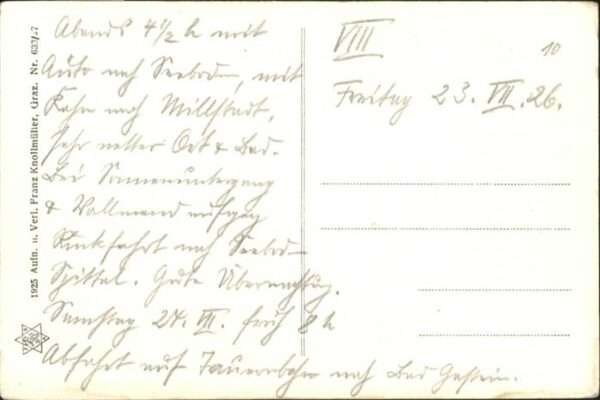 Abends 4 1/2 h mit
Auto nach Seeboden, mit
Kahn nach Millstadt,
sehr netter Ort & Bad.
Bei Sonnenuntergang
& Vollmondaufgang
Rückfahrt nach Seeboden
Spittal. Gute Übernachtung.
Samstag 24. VII. früh 8 h
Abfahrt auf Tauernbahn nach Bad Gastein.
VIII
10
Freitag 23. VII. 26.
1925 Aufn. u. Verl. Franz Knollmüller, Graz. Nr.